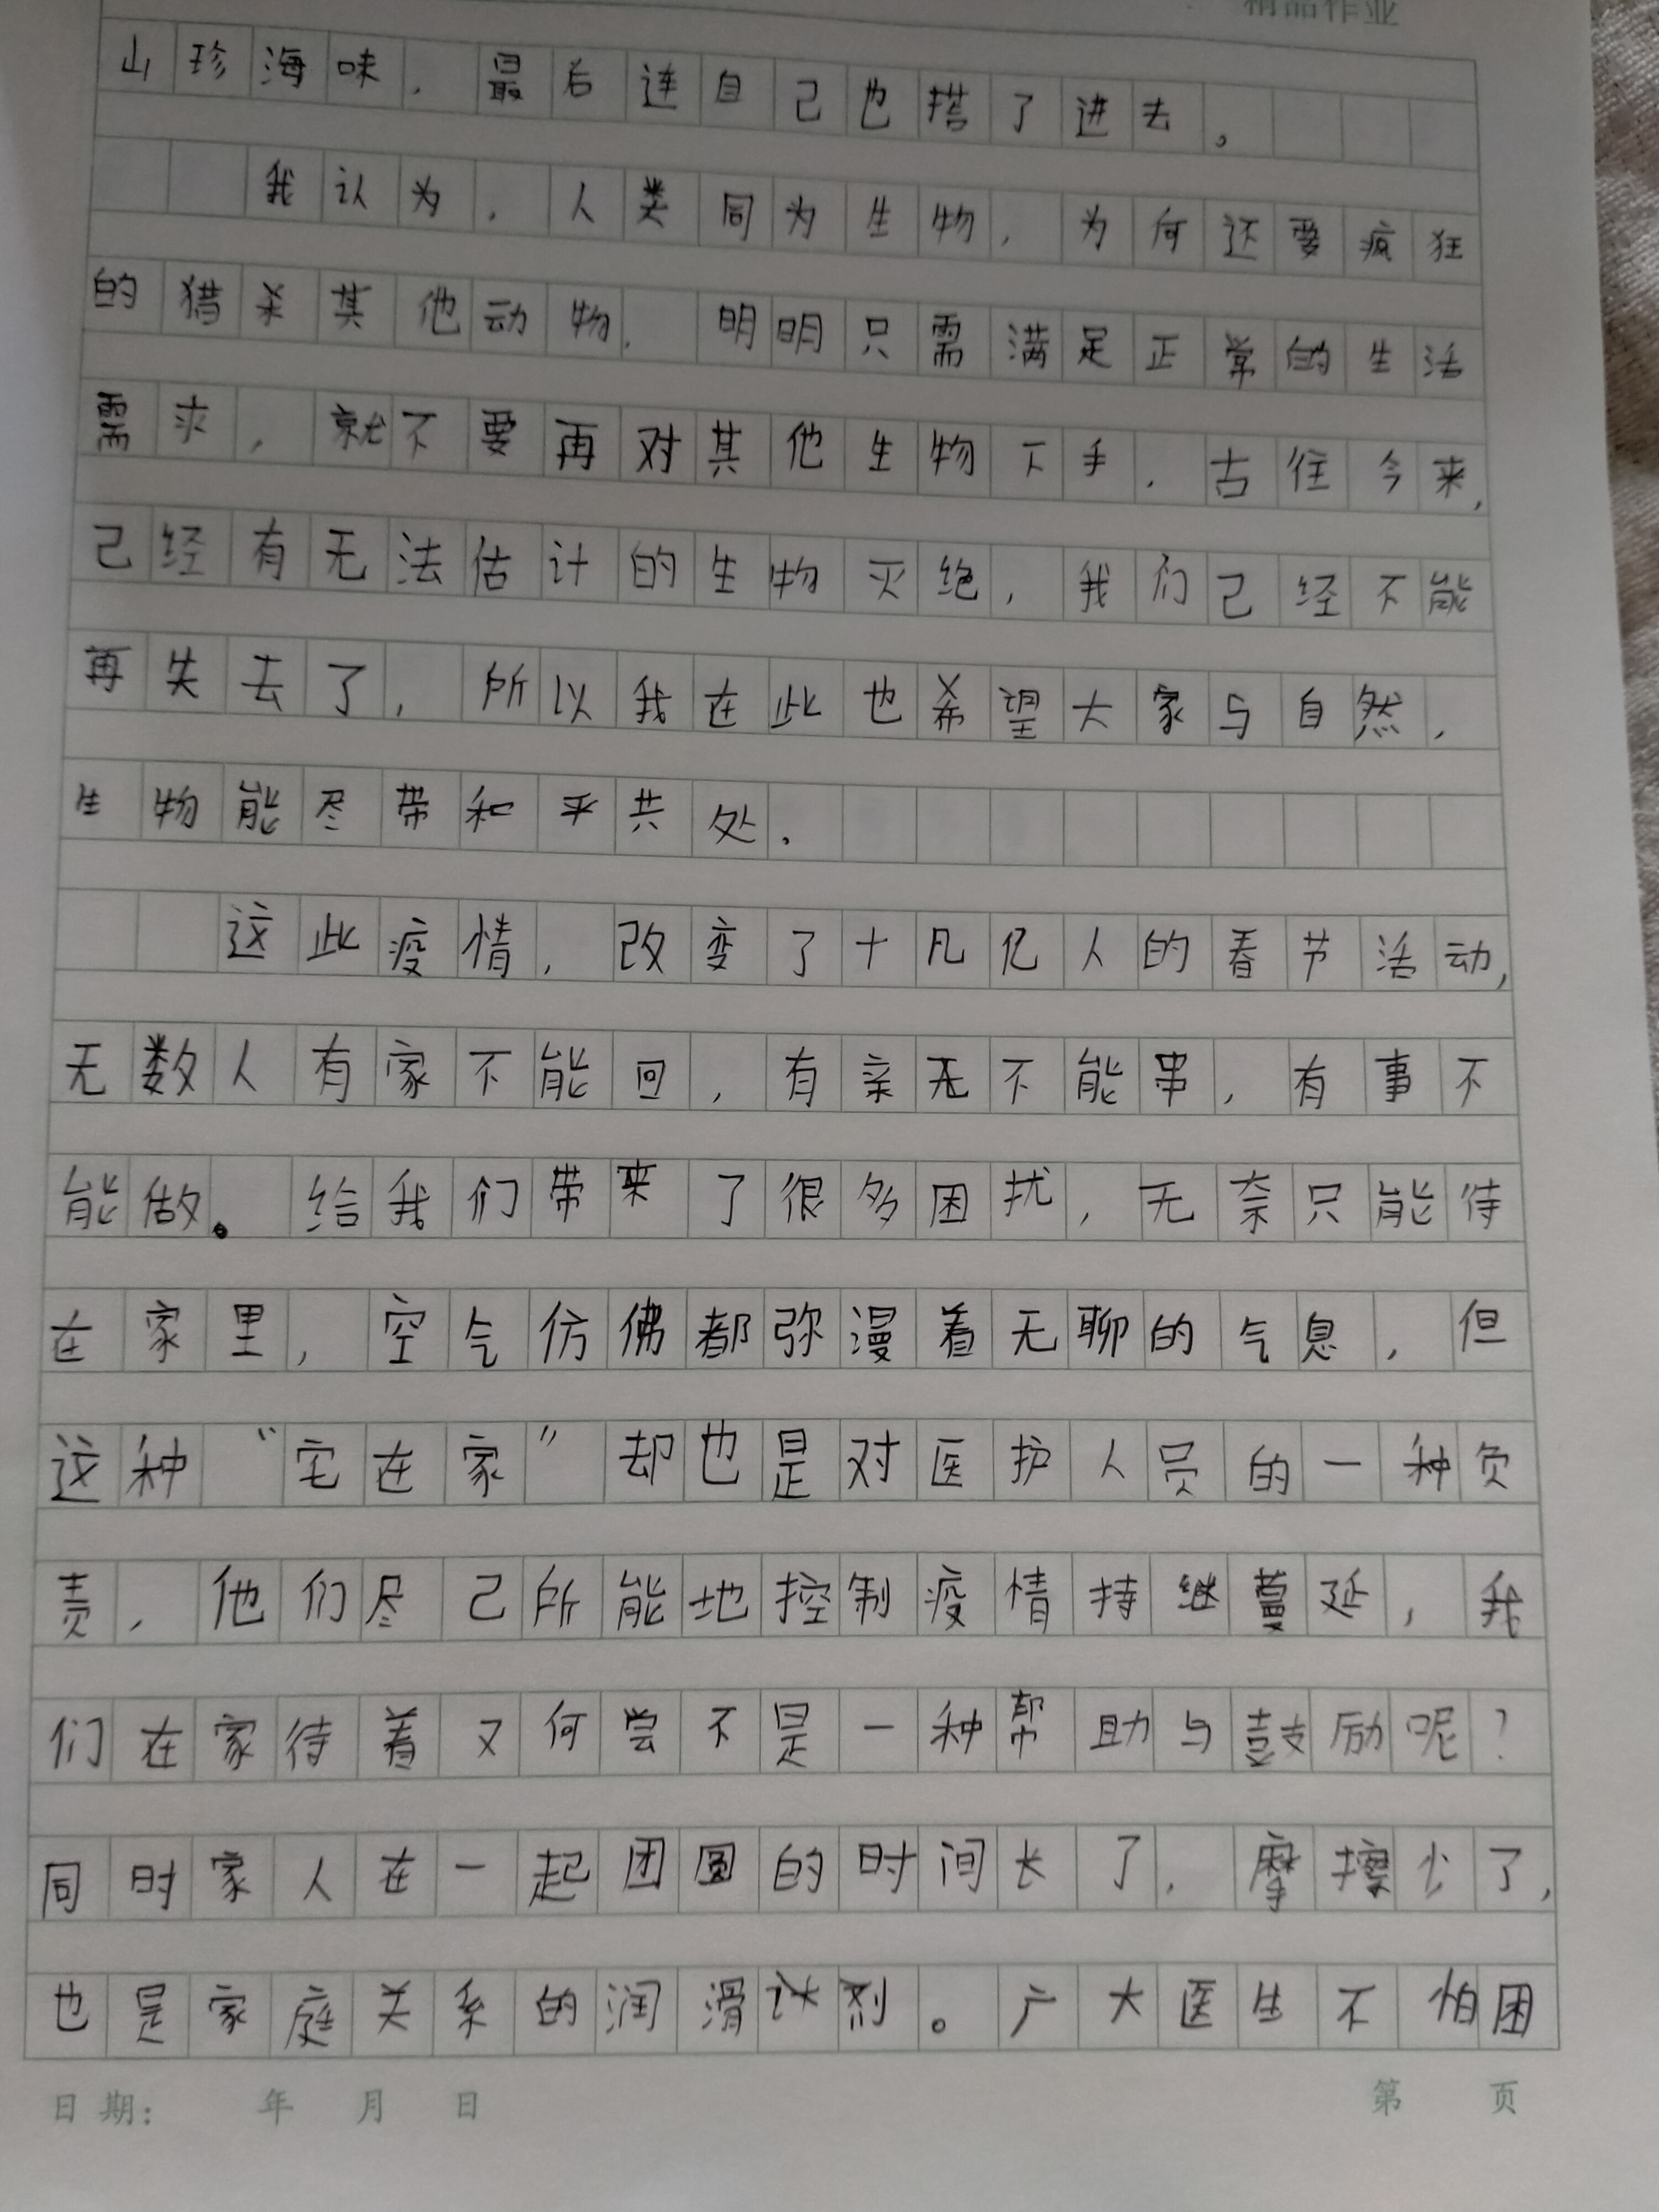 精品作业
山珍海味，最后连自己也搭了进去。
我认为，人类同为生物，为何还要疯狂
的猎杀其他动物，明明只需满足正常的生活
需求，就不要再对其他生物下手，古往今来，
己经有无法估计的生物灭绝，我们己经不能
再失去了，所以我在此也希望大家与自然，
生物能尽带和平共处。
这此疫情，改变了十几亿人的春节活动，
无数人有家不能回，有亲无不能串，有事不
能做。给我们带来了很多困扰，无奈只能待
在家里，空气仿佛都弥漫着无聊的气息，但
这种“宅在家”却也是对医护人员的一种负
责，他们尽己所能地控制疫情持继蔓延，我
们在家待着又何尝不是一种帮助与鼓励呢？
同时家人在一起团圆的时间长了，摩擦少了，
也是家庭关系的润滑剂。广大医生不怕困
日期： 年 月 日 第 页